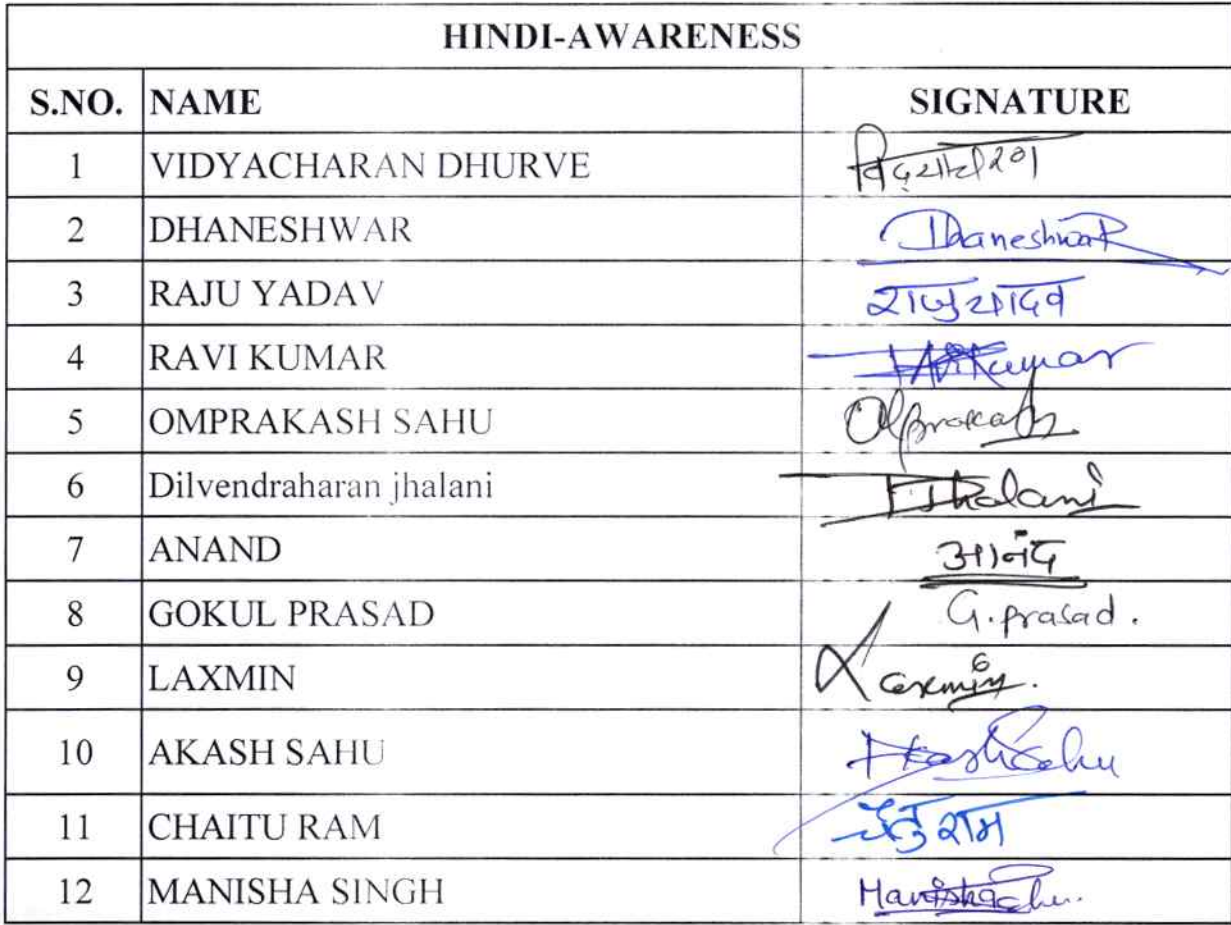 HINDI-AWARENESS
S.NO. NAME SIGNATURE
1 VIDYACHARAN DHURVE विद्याचरण
2 DHANESHWAR Dhaneshwar
3 RAJU YADAV राजु यादव
4 RAVI KUMAR Kumar
5 OMPRAKASH SAHU
6 Dilvendraharan jhalani Jhalani
7 ANAND आनंद
8 GOKUL PRASAD G. prasad.
9 LAXMIN Laxmin.
10 AKASH SAHU Akash Sahu
11 CHAITU RAM चैतु राम
12 MANISHA SINGH Manisha